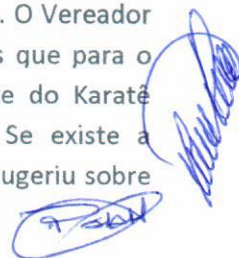 . O Vereador
s que para o
e do Karatê
Se existe a
ugeriu sobre